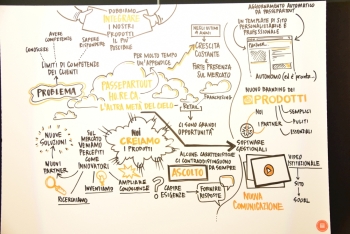 DOBBIAMO
INTEGRARE
I NOSTRI
PRODOTTI
IL PIÙ
POSSIBILE
AVERE
COMPETENZE
SAPERE
RISPONDERE
CONOSCERE
LIMITI DI COMPETENZE
DEI CLIENTI
PROBLEMA
PER MOLTO TEMPO
UN'APPENDICE
PASSEPARTOUT
HO.RE.CA.
L'ALTRA METÀ DEL CIELO
RETAIL
NEGLI ULTIMI
ANNI
CRESCITA
COSTANTE
E
FORTE PRESENZA
SUL MERCATO
FRANCHISING
CI SONO GRANDI
OPPORTUNITÀ
AGGIORNAMENTO AUTOMATICO
DA PASSEPARTOUT
UN TEMPLATE DI SITO
PERSONALIZZABILE E
PROFESSIONALE
PARTNER
AUTONOMO
NUOVO BRANDING DEI
PRODOTTI
NOI
I PARTNER
SEMPLICI
PULITI
ESSENZIALI
SOFTWARE
GESTIONALI
VIDEO
ISTITUZIONALE
SITO
SOCIAL
NUOVA
COMUNICAZIONE
NUOVE
SOLUZIONI
NUOVI
PARTNER
RICERCHIAMO
SUL
MERCATO
VENIAMO
PERCEPITI
COME
INNOVATORI
INVENTIAMO
NOI
CREIAMO
I PRODOTTI
AMPLIARE
CONOSCENZE
ALCUNE CARATTERISTICHE
CI CONTRADDISTINGUONO
DA SEMPRE
ASCOLTO
CAPIRE
ESIGENZE
FORNIRE
RISPOSTE